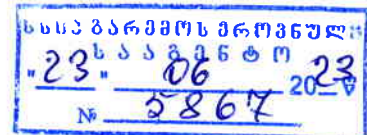 სსიპ გარემოს ეროვნული
სააგენტო
"23" 06 2023
№ 5867